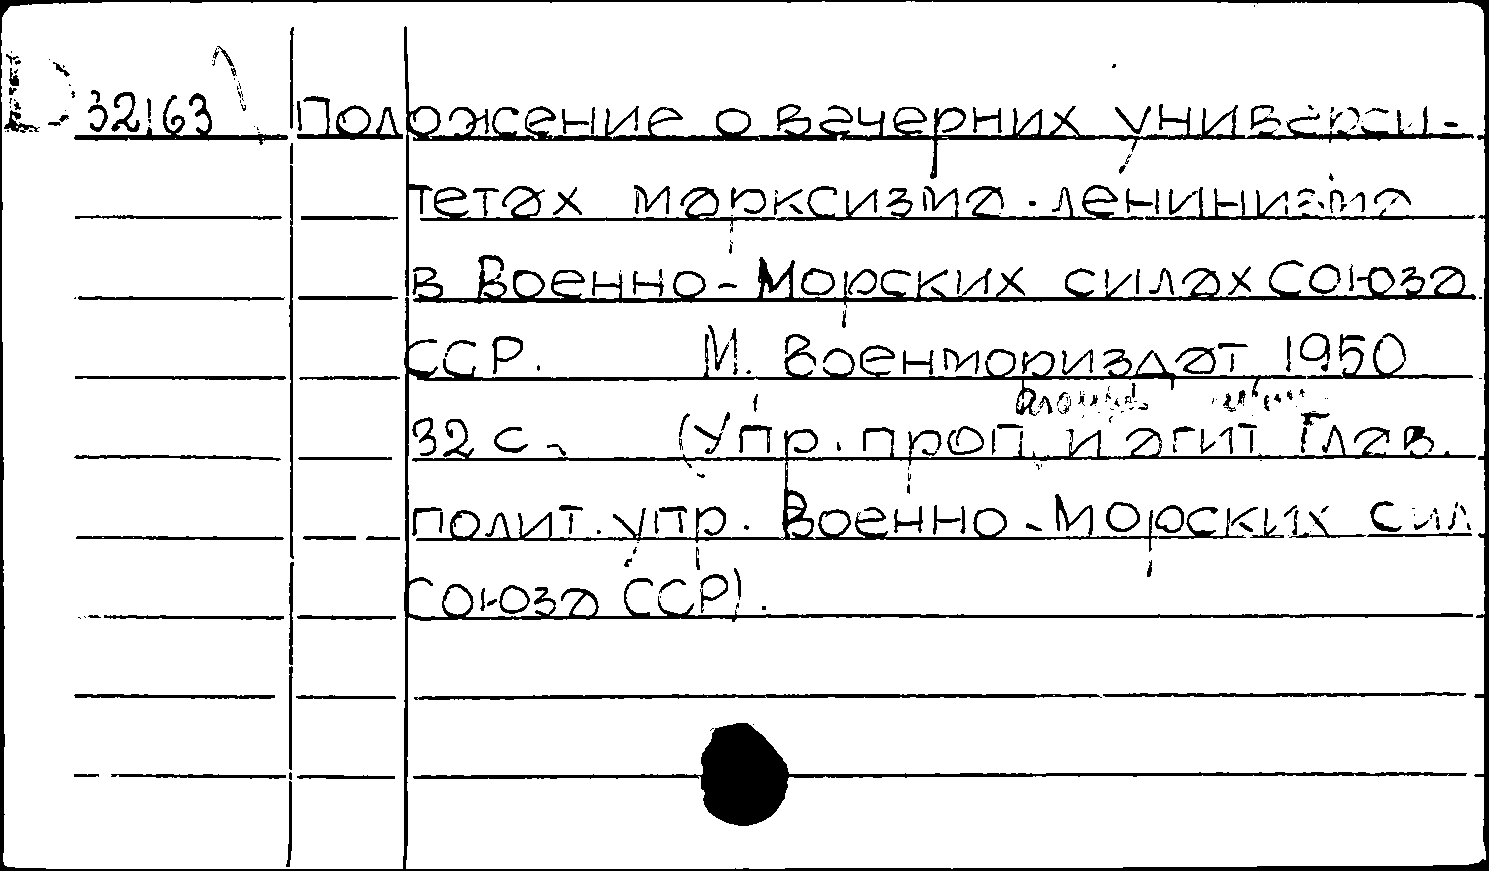 D 32163 Положение о вечерних универси-
тетах марксизма-ленинизма
в Военно-Морских силах Союза
ССР. М. Военмориздат 1950
32 с. (Упр. проп. и агит Глав.
полит. упр. Военно-Морских сил
Союза ССР).